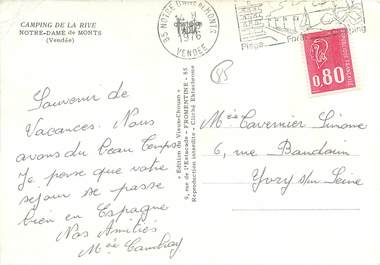 CAMPING DE LA RIVE
NOTRE-DAME de MONTS
(Vendée)
85 NOTRE DAME DE MONTS
1976
VENDEE
Plage
REPUBLIQUE FRANÇAISE
0,80
85
Souvenir de
Vacances. Nous
avons du beau Temps
Je pense que votre
séjour se passe
bien en Espagne
Nos Amitiés
« Edition du Vieux-Chouan »
9, rue de l'Estacade - FROMENTINE - 85
Reproduction interdite - Cliché Ektachrome
Mée Cavernier Simone
6, rue Baudoin
Yvry s/m Seine